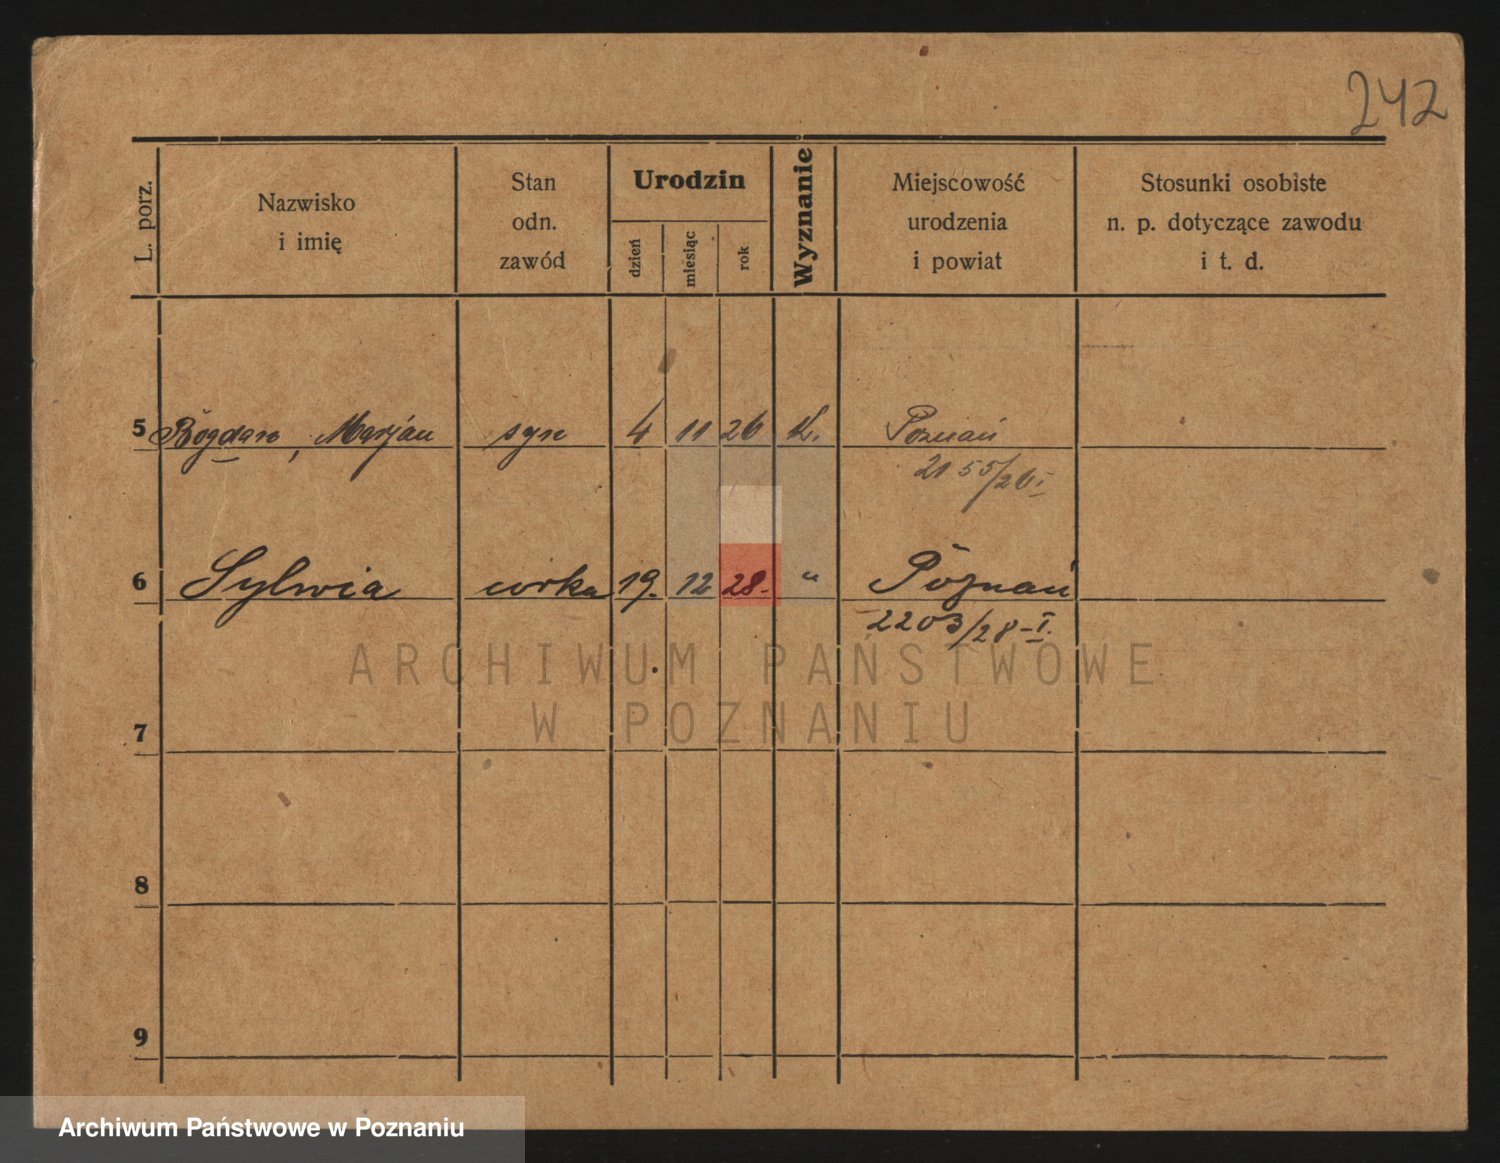 242
L. porz.
Nazwisko
i imię
Stan
odn.
zawód
Urodzin
dzień
miesiąc
rok
Wyznanie
Miejscowość
urodzenia
i powiat
Stosunki osobiste
n. p. dotyczące zawodu
i t. d.
5 Bogdan, Marjan syn 4 11 26 k. Poznań
2155/26 I
6 Sylwia córka 19. 12 28. " Poznań
2203/28-I.
ARCHIWUM PAŃSTWOWE
W POZNANIU
7
8
9
Archiwum Państwowe w Poznaniu